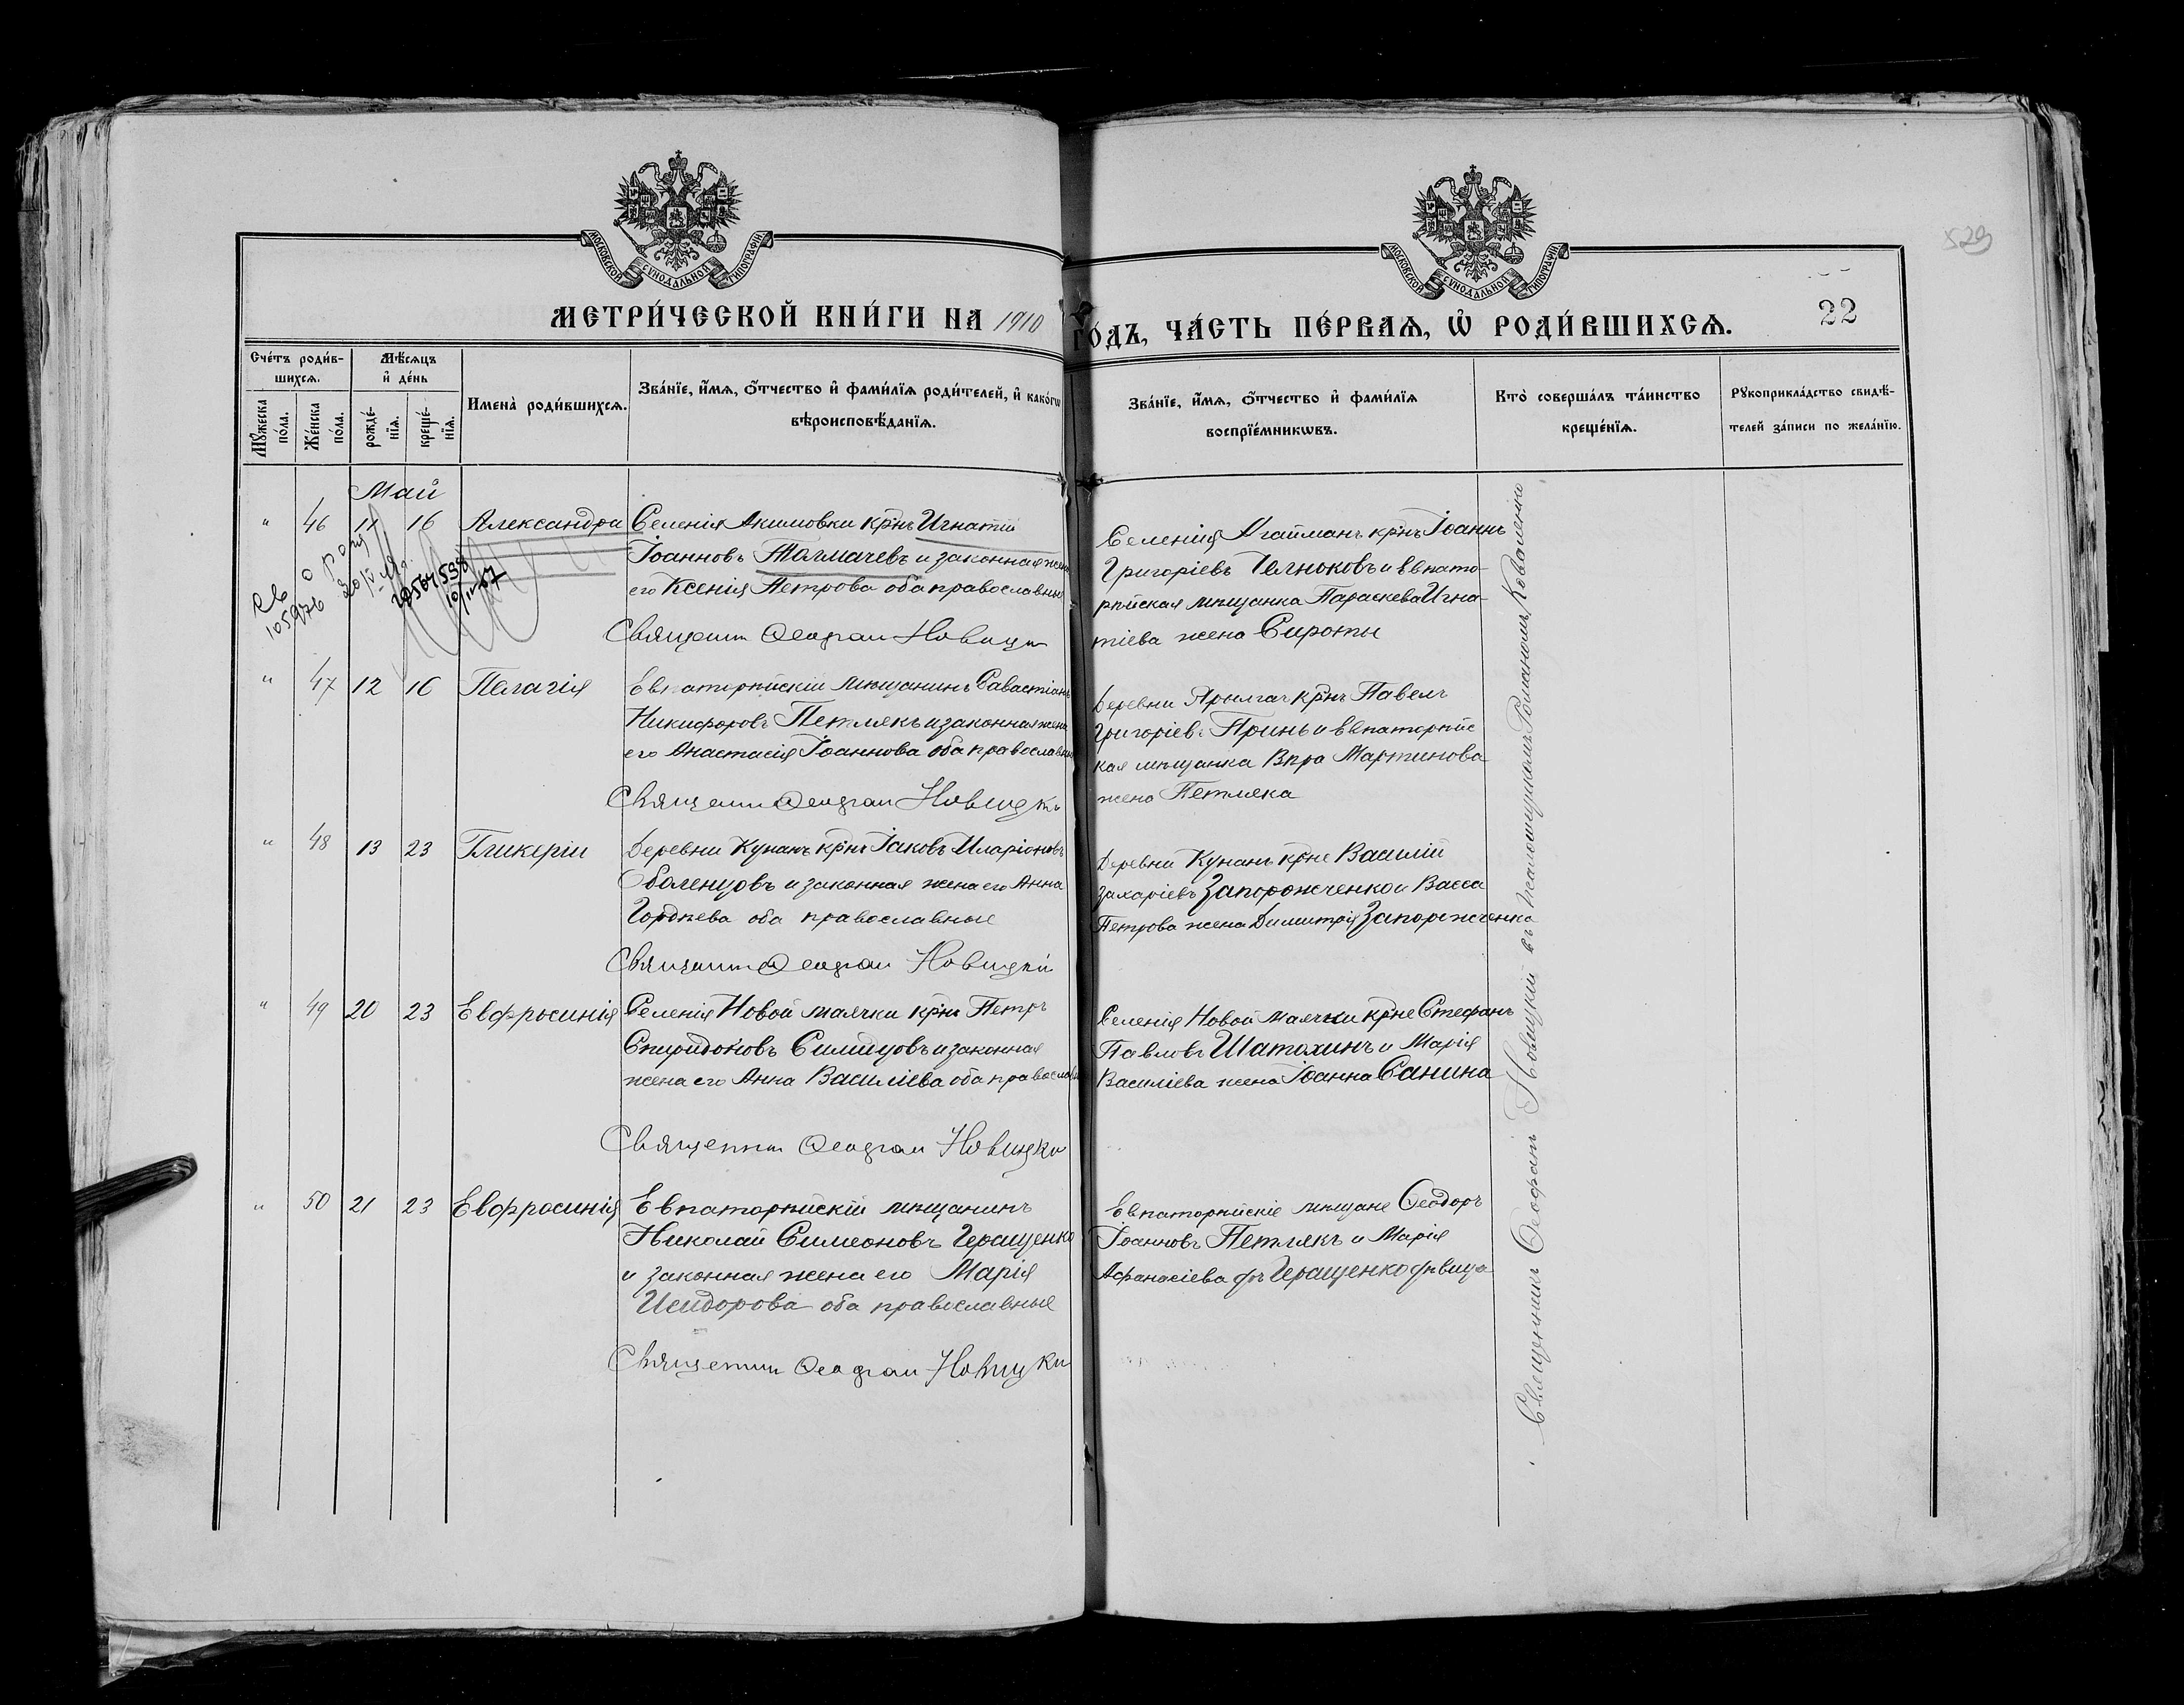 529
МОСКОВСКОЙ СУНОДАЛЬНОЙ ТИПОГРАФІИ
МОСКОВСКОЙ СУНОДАЛЬНОЙ ТИПОГРАФІИ
МЕТРИ́ЧЕСКОЙ КНИ́ГИ НА 1910
ГО́ДЪ, ЧА́СТЬ ПЕ́РВАѦ, Ѡ҆ РОДИ́ВШИХСѦ.
22
Сче́тъ роди́в-
шихсѧ.
Мꙋ́жеска по́ла.
Же́нска по́ла.
Мѣ́сѧцъ
и҆ де́нь
рожде́-
нїѧ.
креще́-
нїѧ.
Имена̀ роди́вшихсѧ.
Зва́нїе, и҆́мѧ, ѻ҆́тчество и҆ фами́лїѧ роди́телей, и҆ како́гѡ
вѣроисповѣ́данїѧ.
Зва́нїе, и҆́мѧ, ѻ҆́тчество и҆ фами́лїѧ
воспрїе́мникѡвъ.
Кто̀ соверша́лъ та́инство
креще́нїѧ.
Рꙋкоприкла́дство свидѣ́-
телей за́писи по жела́нїю.
Май
" 46 11 16 Александра
Селенія Акимовки крнъ Игнатій
Іоанновъ Толмачевъ и законная жена
его Ксенія Петрова оба православные
Священникъ Ѳеофанъ Новицкій
Селенія Агайманъ крнъ Іоаннъ
Григоріевъ и Евпато-
рійская мѣщанка Параскева Игна-
тіева жена Сироты
105976
" 47 12 16 Пелагія
Евпаторійскій мѣщанинъ Савастіанъ
Никифоровъ Петлякъ и законная жена
его Анастасія Іоаннова оба православные
Священникъ Ѳеофанъ Новицкій
Деревни Ярылгач крнъ Павелъ
Григоріевъ Принь и Евпаторійс
кая мѣщанка Вѣра Мартинова
жена Петляка
" 48 13 23 Гликерія
Деревни Кунанъ крнъ Іаковъ Иларіоновъ
Оболенцовъ и законная жена его Анна
Гордѣева оба православные
Священникъ Ѳеофанъ Новицкій
Деревни Кунанъ крне Василій
Захаріевъ Запорожченко и Васса
Петрова жена Димитрія Запорожченка
" 49 20 23 Евфросинія
Селенія Новой Маячки крнъ Петръ
Спиридоновъ и законная
жена его Анна Василіева оба православн
Священникъ Ѳеофанъ Новицкій
Селенія Новой Маячки крне Стефанъ
Павловъ Шатохинъ и Марія
Василіева жена Іоанна Санина
" 50 21 23 Евфросинія
Евпаторійскій мѣщанинъ
Николай Симеоновъ Геращенко
и законная жена его Марія
Исидорова оба православные
Священникъ Ѳеофанъ Новицкій
Евпаторійскіе мѣщане Ѳеодоръ
Іоанновъ Петлякъ и Марія
Афанасіева Геращенко дѣвица
Священникъ Ѳеофанъ Новицкій съ псаломщикомъ Романомъ Коваленко